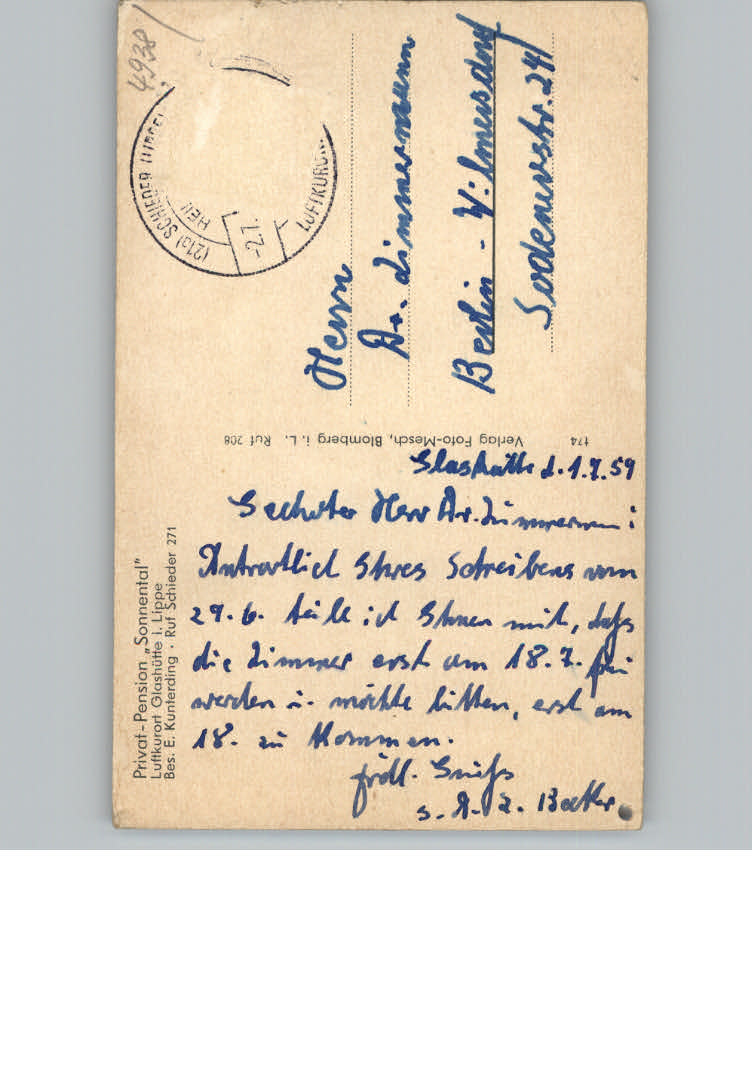 4938
(21a) SCHIEDER (LIPPE)
HEIL
-2.7.
LUFTKURORT
Herrn
Dr. Zimmermann
Berlin - Wilmersdorf
Sodenerstr. 24
174
Verlag Foto-Mesch, Blomberg i. L. Ruf 208
Privat-Pension „Sonnental"
Luftkurort Glashütte i. Lippe
Bes. E. Kunterding · Ruf Schieder 271
Glashütte d. 1.7.59
Geehrter Herr Dr. Zimmermann!
Antwortlich Ihres Schreibens vom
29.6. teile ich Ihnen mit, daß
die Zimmer erst am 18.7. frei
werden u. möchte bitten, erst am
18. zu kommen.
frdl. Gruß